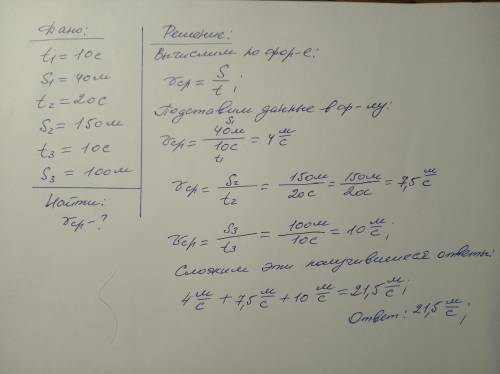 Дано:
t1 = 10с
S1 = 40м
t2 = 20с
S2 = 150м
t3 = 10с
S3 = 100м
Найти:
vср - ?
Решение:
Вычислим по фор-е:
vср = S/t;
Подставим данные в ф-лу:
vср = S1 40м / t1 10с = 4 м/с
vср = S2/t2 = 150м/20с = 150м/20с = 7,5 м/с
vср = S3/t3 = 100м/10с = 10 м/с;
Сложим эти получившиеся ответы:
4 м/с + 7,5 м/с + 10 м/с = 21,5 м/с;
Ответ: 21,5 м/с;